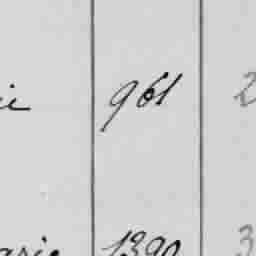 ie 961 2
arie 1390 3